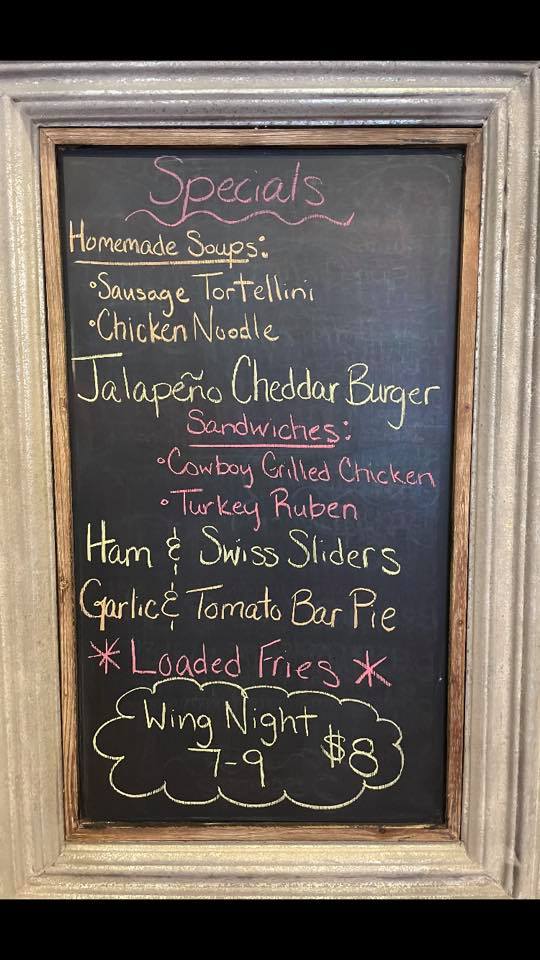 Specials
Homemade Soups:
•Sausage Tortellini
•Chicken Noodle
Jalapeño Cheddar Burger
Sandwiches:
•Cowboy Grilled Chicken
•Turkey Ruben
Ham & Swiss Sliders
Garlic & Tomato Bar Pie
*Loaded Fries*
Wing Night
7-9 $8